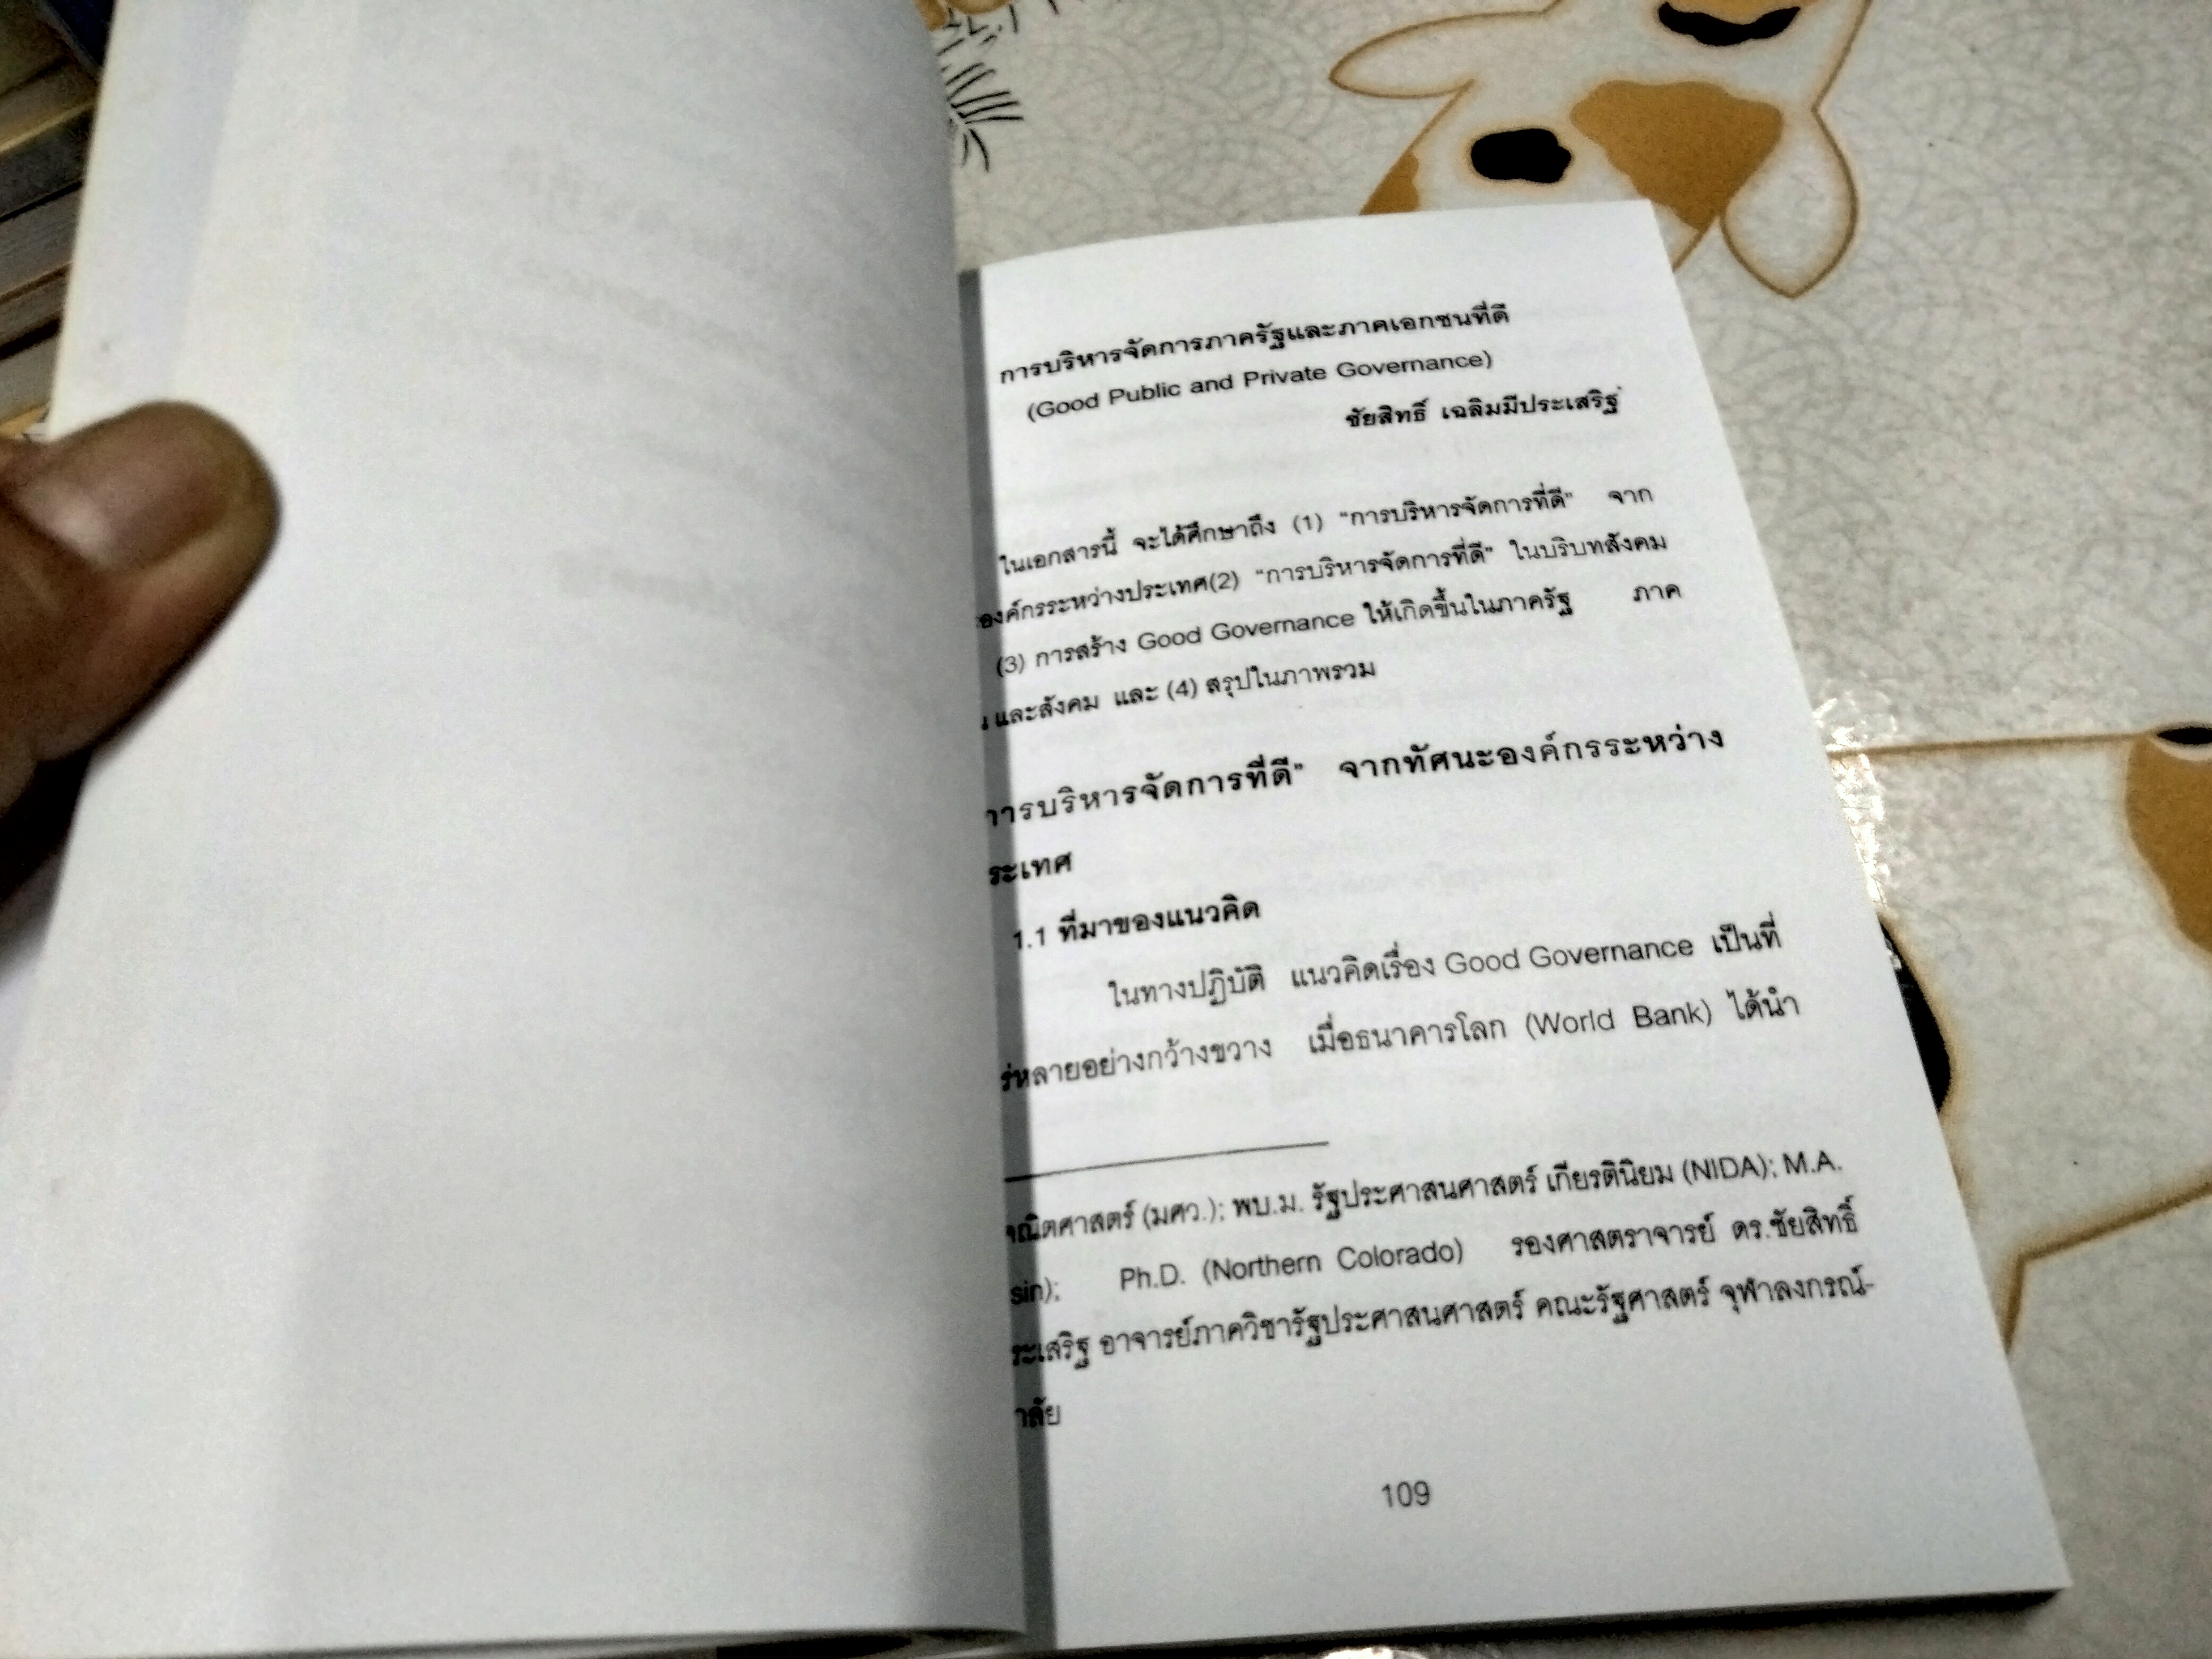 การบริหารจัดการภาครัฐและภาคเอกชนที่ดี
(Good Public and Private Governance)
ชัยสิทธิ์ เฉลิมมีประเสริฐ
ในเอกสารนี้ จะได้ศึกษาถึง (1) "การบริหารจัดการที่ดี" จาก
องค์กรระหว่างประเทศ(2) "การบริหารจัดการที่ดี" ในบริบทสังคม
(3) การสร้าง Good Governance ให้เกิดขึ้นในภาครัฐ ภาค
และสังคม และ (4) สรุปในภาพรวม
ารบริหารจัดการที่ดี" จากทัศนะองค์กรระหว่าง
ระเทศ
1.1 ที่มาของแนวคิด
ในทางปฏิบัติ แนวคิดเรื่อง Good Governance เป็นที่
ร่หลายอย่างกว้างขวาง เมื่อธนาคารโลก (World Bank) ได้นำ
ณิตศาสตร์ (มศว.); พบ.ม. รัฐประศาสนศาสตร์ เกียรตินิยม (NIDA); M.A.
sin); Ph.D. (Northern Colorado) รองศาสตราจารย์ ดร.ชัยสิทธิ์
ระเสริฐ อาจารย์ภาควิชารัฐประศาสนศาสตร์ คณะรัฐศาสตร์ จุฬาลงกรณ์-
าลัย
109